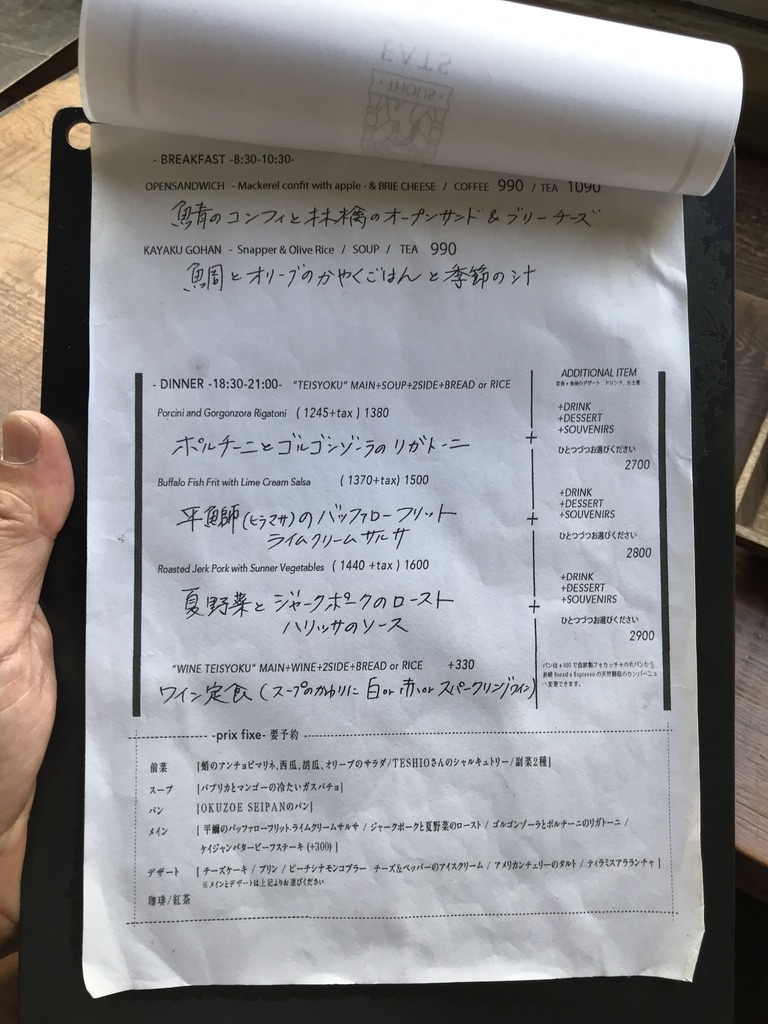 EATS
THOUS
- BREAKFAST -8:30-10:30-
OPENSANDWICH - Mackerel confit with apple - & BRIE CHEESE / COFFEE 990 / TEA 1090
鯖のコンフィと林檎のオープンサンド & ブリーチーズ
KAYAKU GOHAN - Snapper & Olive Rice / SOUP / TEA 990
鯛とオリーブのかやくごはんと季節の汁
- DINNER -18:30-21:00- "TEISYOKU" MAIN+SOUP+2SIDE+BREAD or RICE
Porcini and Gorgonzora Rigatoni (1245+tax) 1380
ポルチーニとゴルゴンゾーラのリガトーニ
Buffalo Fish Frit with Lime Cream Salsa (1370+tax) 1500
平魚師(ヒラマサ)のバッファローフリット
ライムクリームサルサ
Roasted Jerk Pork with Sunner Vegetables (1440 +tax) 1600
夏野菜とジャークポークのロースト
ハリッサのソース
"WINE TEISYOKU" MAIN+WINE+2SIDE+BREAD or RICE +330
ワイン定食(スープのかわりに 白 or 赤 or スパークリングワイン)
ADDITIONAL ITEM
+DRINK
+DESSERT
+SOUVENIRS
ひとつづつお選びください
2700
+
+DRINK
+DESSERT
+SOUVENIRS
ひとつづつお選びください
2800
+
+DRINK
+DESSERT
+SOUVENIRS
ひとつづつお選びください
2900
+
パンは+100で自家製フォカッチャの丸パンから
長崎 Bread a Espresso の天然酵母のカンパーニュ
へ変更できます。
-prix fixe- 要予約
前菜 [蛸のアンチョビマリネ、西瓜、胡瓜、オリーブのサラダ/TESHIOさんのシャルキュトリー/副菜2種]
スープ [パプリカとマンゴーの冷たいガスパチョ]
パン [OKUZOE SEIPANのパン]
メイン [ 平鰤のバッファローフリット-ライムクリームサルサ / ジャークポークと夏野菜のロースト / ゴルゴンゾーラとポルチーニのリガトーニ /
ケイジャンバタービーフステーキ (+300) ]
デザート [ チーズケーキ / プリン / ピーチシナモンコブラー チーズ&ペッパーのアイスクリーム / アメリカンチェリーのタルト / ティラミスアラランチャ ]
※メインとデザートは上記よりお選びください
珈琲/紅茶